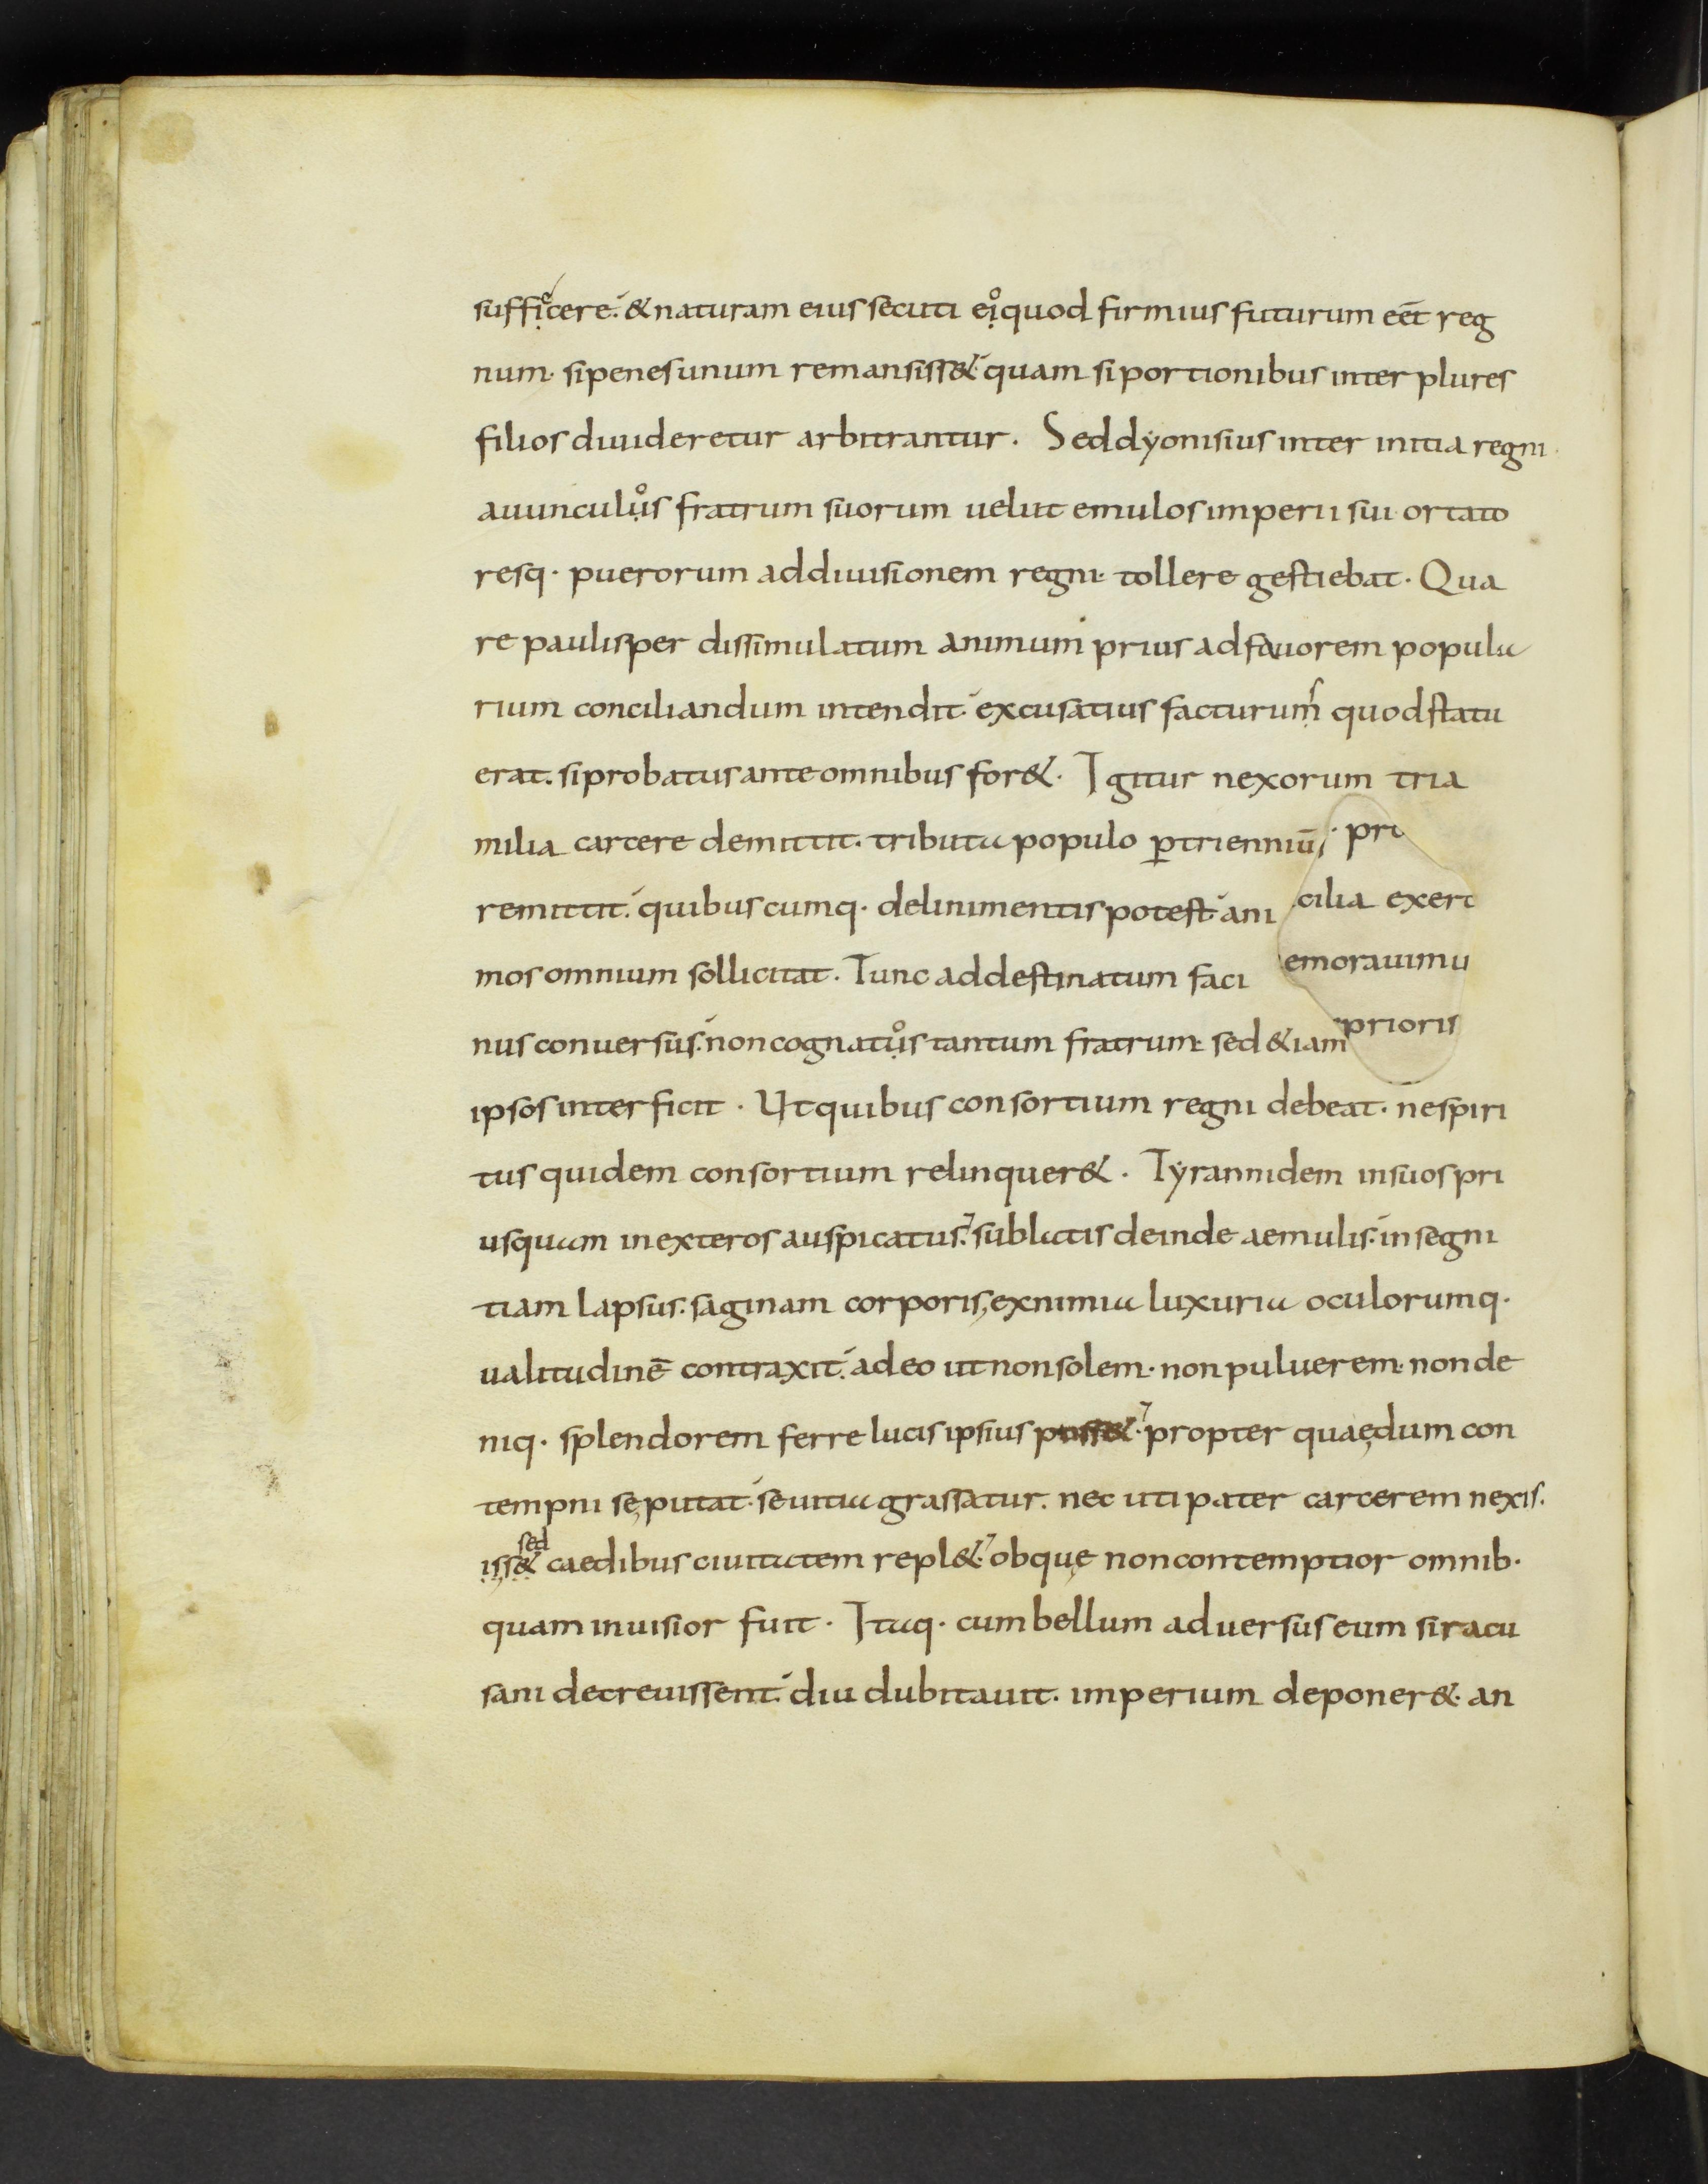 sufficere. & naturam eius secuti eiͦ quod firmius futurum eēt reg
num. si penes unum remansiss& quam si portionibus inter plures
filios diuideretur arbitrantur. Sed dyonisius inter initia regni.
auunculuͦs fratrum suorum uelut emulos imperii sui ortato
resq· puerorum ad diuisionem regni. tollere gestiebat. Qua
re paulisper dissimulatum animum prius ad fauorem popula
rium conciliandum intendit. excusatius facturumˢ quod statu
erat. si probatus ante omnibus for&. Igitur nexorum tria
milia carcere demittit. tributa populo ꝑ trienniū · pri
remittit. quibuscumq· delinimentis potest ani cilia exerc
mos omnium sollicitat. Tunc ad destinatum faci emorauimu
nus conuersus. non cognatuͦs tantum fratrum. sed &iam prioris
ipsos interficit. Ut quibus consortium regni debeat. ne spiri
tus quidem consortium relinquer&. Tyrannidem in suos pri
usquam in exteros auspicatus. sublatis deinde aemulis. in segni
tiam lapsus. saginam corporis, ex nimia luxuria oculorumq·
ualitudinē contraxit. adeo ut non solem. non puluerem. non de
niq· splendorem ferre lucis ipsius poss&. propter quaędum con
tempni se putat. seuitia grassatur. nec uti pater carcerem nexis.
sed
iss& caedibus ciuitatem repl&. ob quę non contemptior omnib·
quam inuisior fuit. Itaq· cum bellum aduersus eum siracu
sani decreuissent. diu dubitauit. imperium deponer&. an